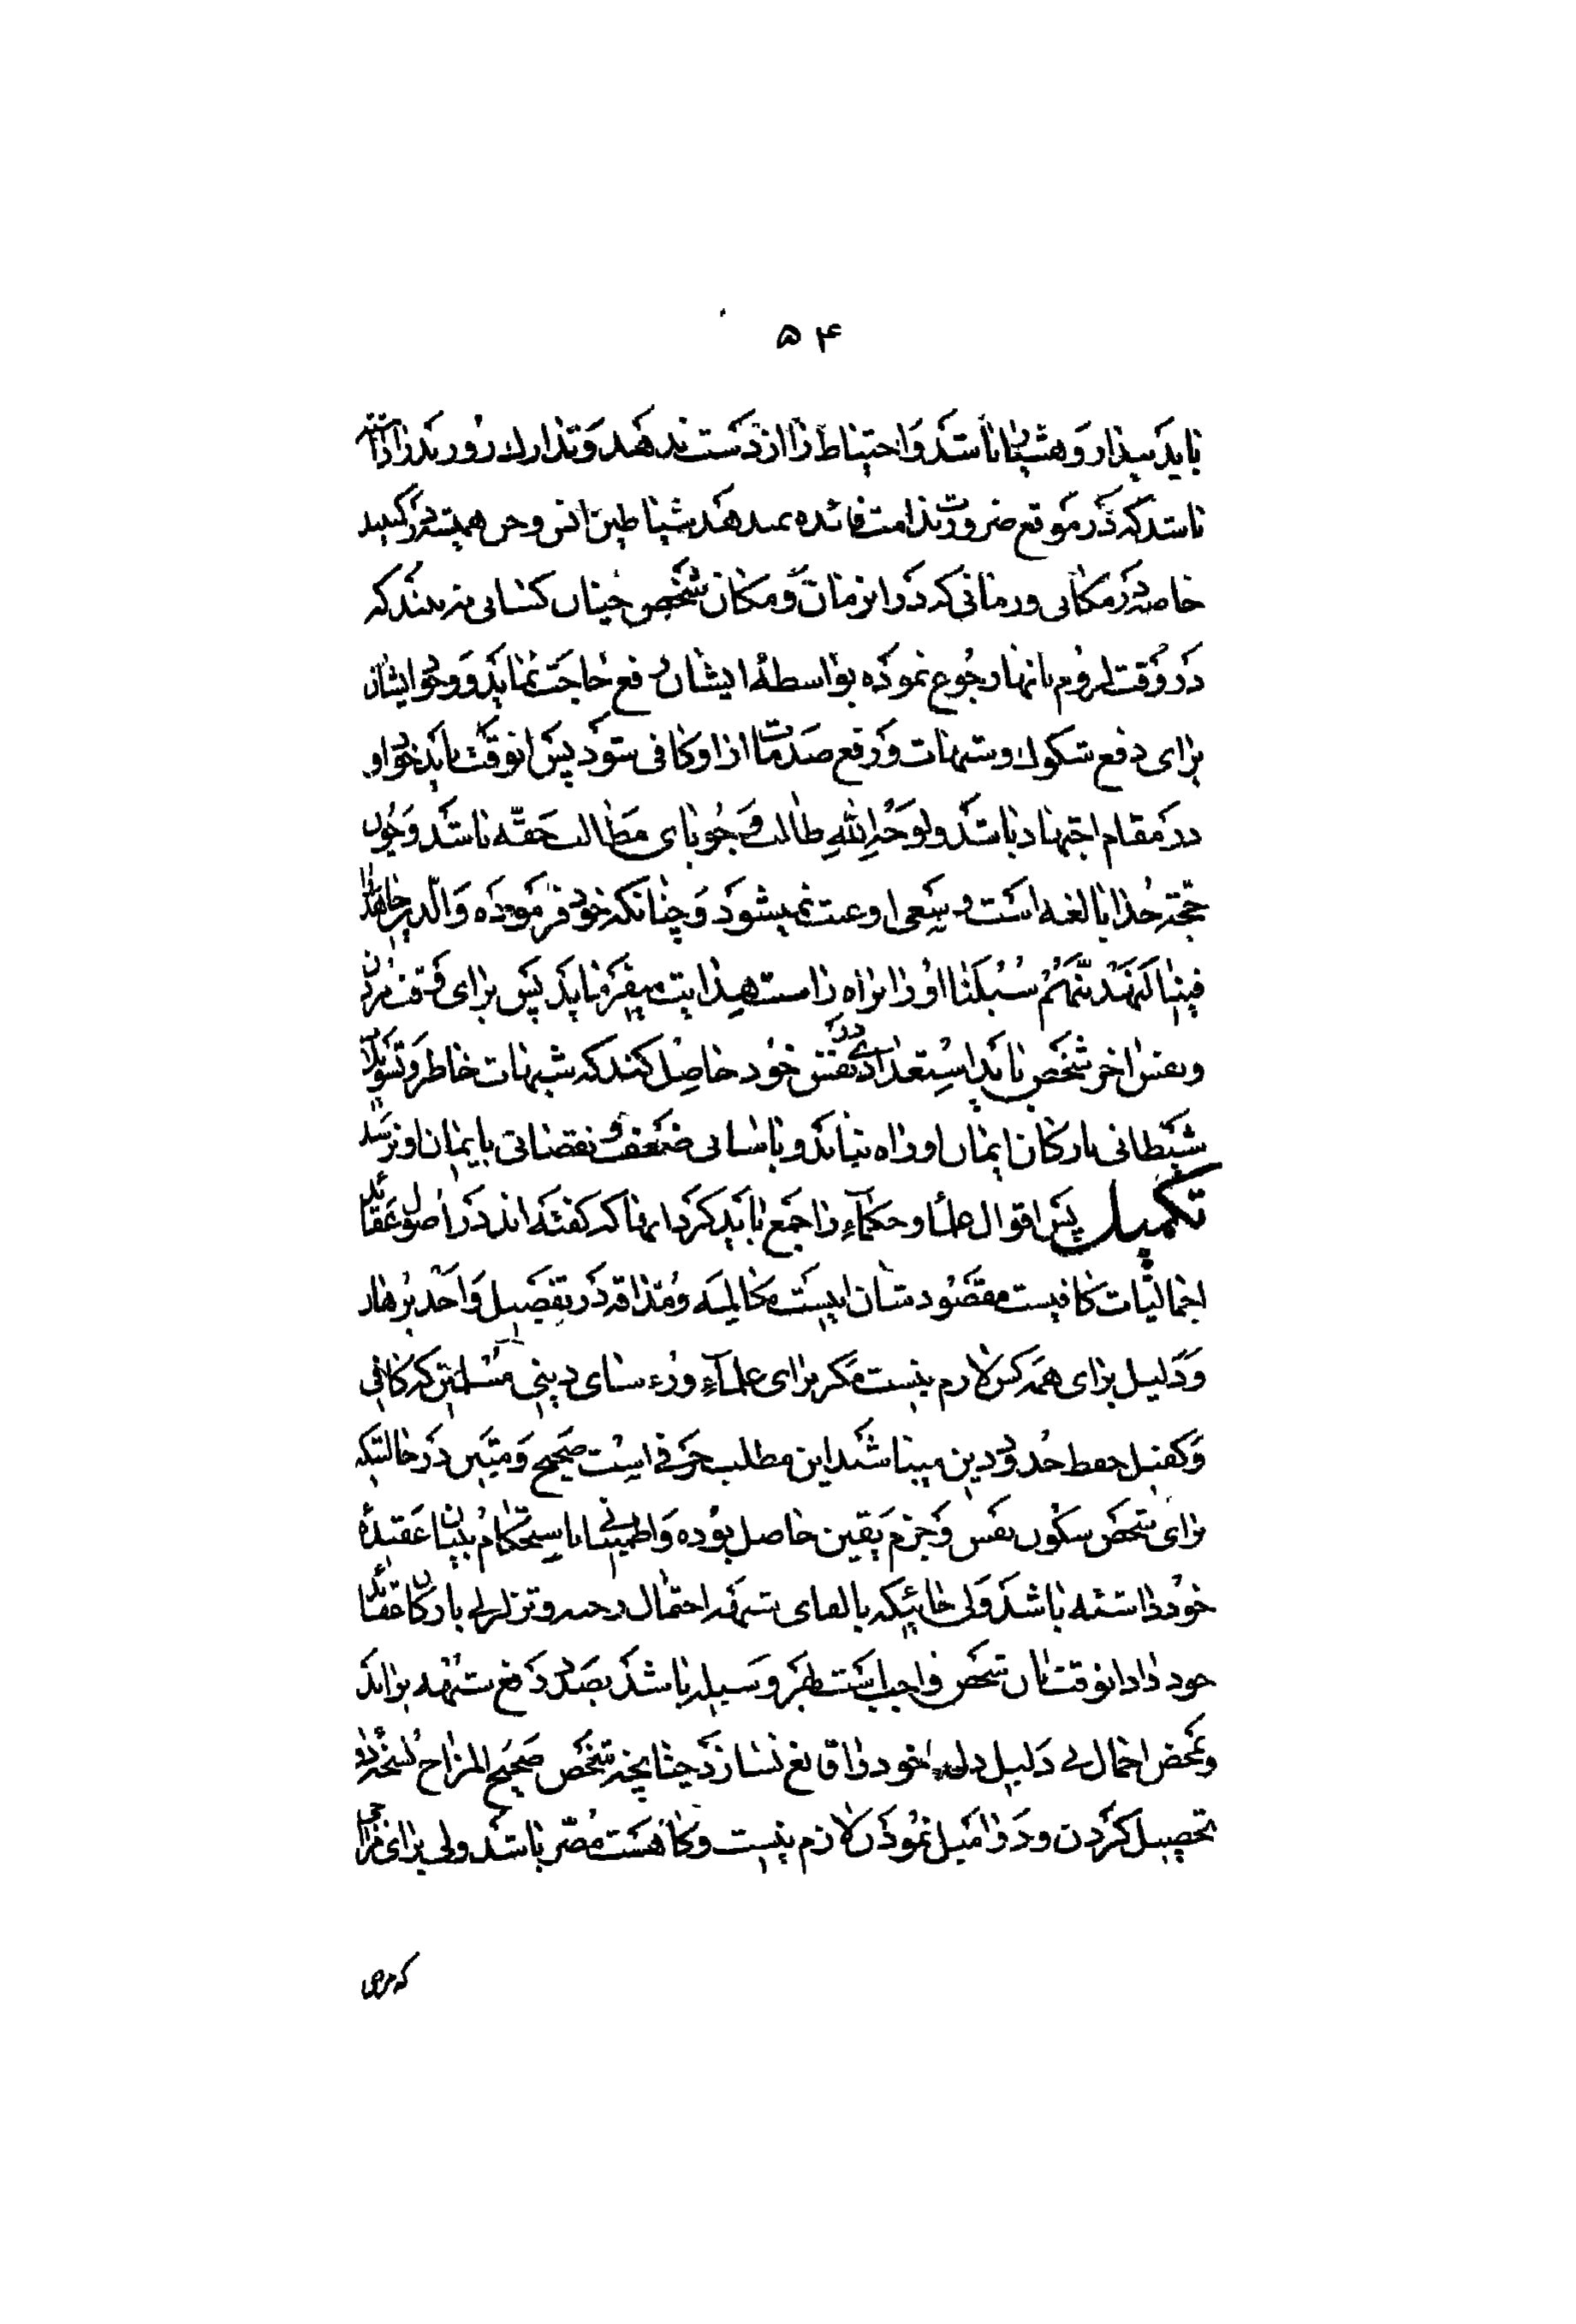 ۵۴
باید بیدار و هشیار باشد و احتیاط را از دست ندهد و تدارک روز بد را داشته
باشد که در موقع ضرورت ندامت فائده نمیدهد شیاطین انس و جن همیشه در کمینند
خاصه در مکانی و زمانی که در آنزمان و مکان شخص چنان کسانی نه بیند که
در وقت لزوم بانها رجوع نموده بواسطهٔ ایشان رفع حاجت نماید و وجود ایشان
برای دفع شکوک و شبهات و رفع صدمات از او کافی شود پس آنوقت باید خود او
در مقام اجتهاد باشد و لوجه الله طالب و جویای مطالب حقّه باشد و چون
حجّة خدا بالغه است سعی او عبث نمیشود و چنانکه خود فرموده والّذین جاهدوا
فینا لنهدینّهم سبلنا او را براه راست هدایت میفرماید پس برای وقت مردن
و نفس آخر شخص باید استعدادی در نفس خود حاصل کند که شبهات خاطر و تسویلات
شیطانی بارکان ایمان او راه نیابد و باسانی ضعف و نقصانی بایمان او نرسد
تکمیل پس اقوال علما و حکماء را جمع باید کرد آنها که گفته‌اند در اصول عقائد
اجمالیّات کافیست مقصودشان اینست که و مداقه در تفصیل و اخذ برهان
و دلیل برای همه کس لازم نیست مگر برای علمآء و رؤسای دینی مسلمین که کافی
و کفیل حفظ حدود دین میباشند این مطلب حرفی است صحیح و متین در حالتیکه
برای شخص سکون نفس و جزم یقین حاصل بوده و اطمینانی باستحکام بنیان عقیدهٔ
خود داشته باشد ولی جائیکه بالقای شبهه احتمال رخنه و تزلزلی بارکان عقائد
خود داد آنوقت بان شخص واجب است بهر وسیله باشد بصدد دفع شبهه براید
و بمحض اجمال بی دلیل دل خود را قانع نسازد چنانچه شخص صحیح المزاج را نسخهٔ دوا
تحصیل کردن و دوا میل نمودن لازم نیست و گاه هست مضرّ باشد ولی برای مزاجی
که مرض